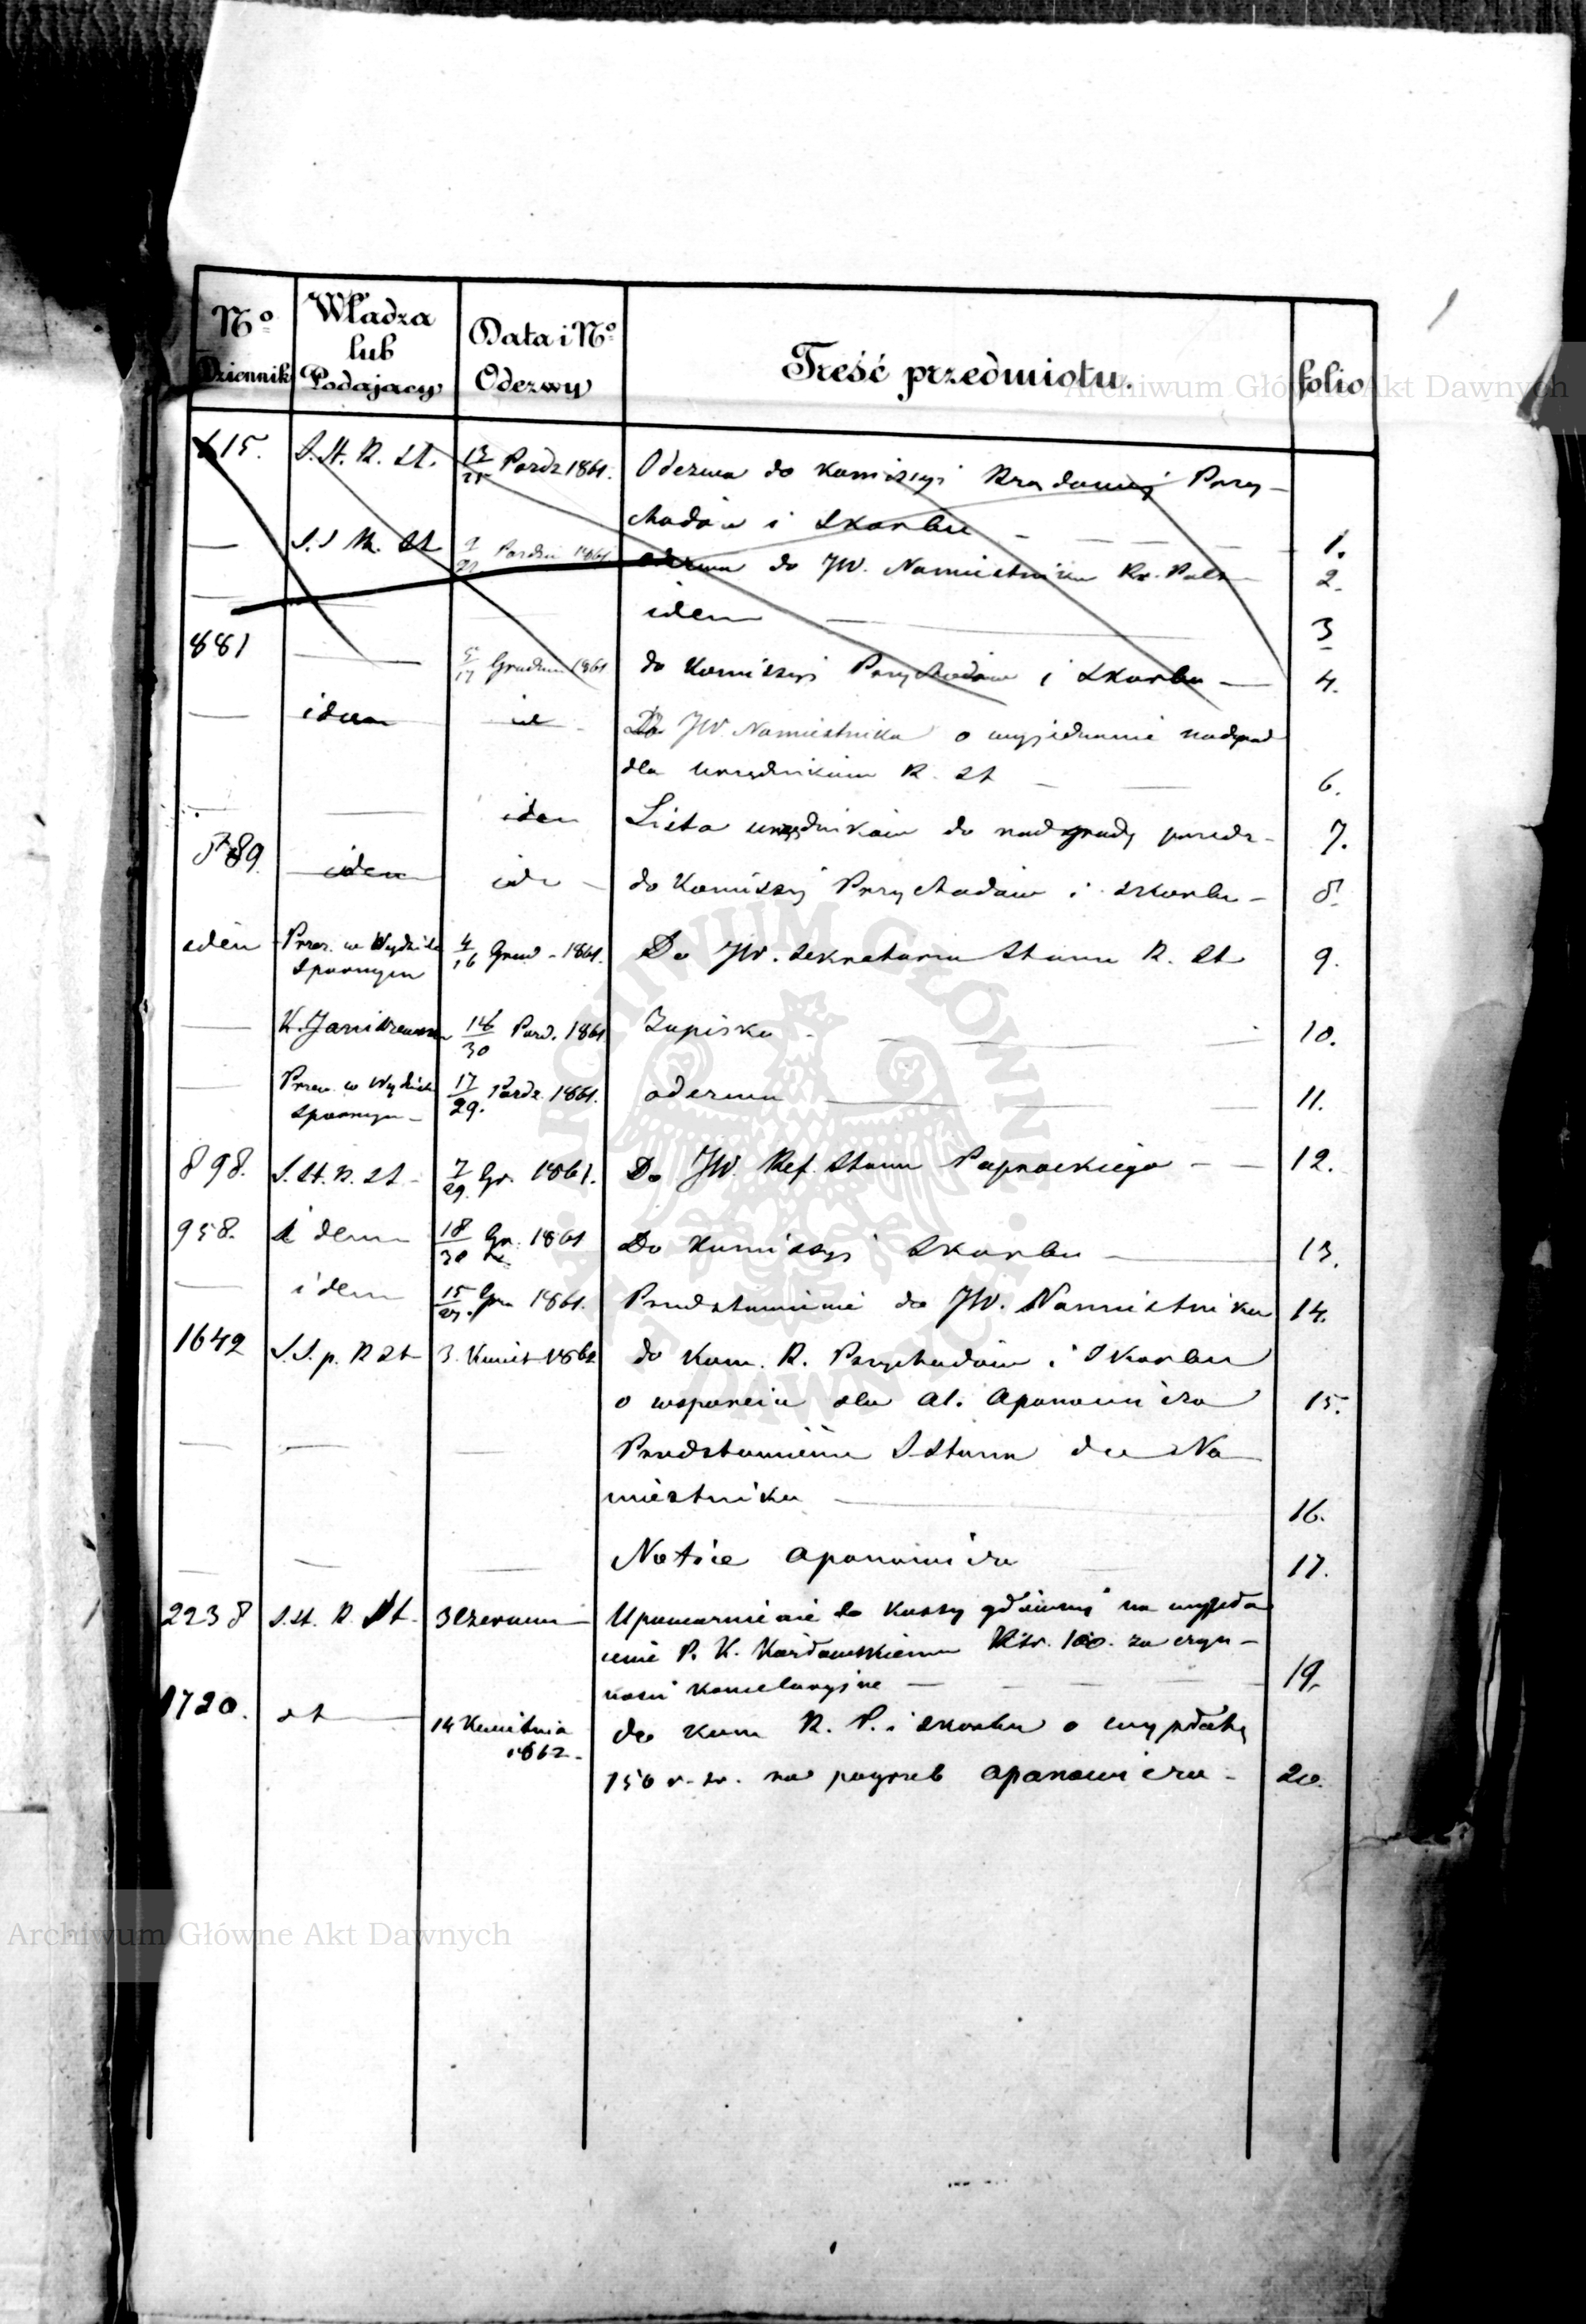 1
No Dziennik | Władza lub Podający | Data i No Odezwy | Treść przedmiotu. | folio
615. | S. St. R. St. | 13/25 Paźdz 1861. | Odezwa do Komissyi Rządowej Przy-
chodów i Skarbu | 1.
— | S. S R. St | 9/21 Paździe 1861 | odezwa do JW. Namiestnika Kr. Pols | 2.
— | idem | 3
881 | — | 5/17 Grudnia 1861 | do Komissyi Przychodów i Skarbu — | 4.
— | idem | id | Do JW Namiestnika o wyjednanie nadgrod
dla urzędników R. St | 6.
— | — | idem | Lista urzędników do nadgrody przedz- | 7.
889. | idem | ide | do Komissyi Przychodów i Skarbu - | 8.
idem | Prezes w Wydziale Spornym | 4/16 Grud - 1861. | Do JW. Sekretarza Stanu R. St | 9.
— | K. Janiszewski | 18/30 Pazd. 1861 | Zapiska | 10.
— | Prezes w Wydziale Spornym - | 17/29. Pazdz. 1861. | odezwa — | 11.
898. | S. St. R. St - | 7/29. Gr. 1861. | Do JW. Ref. Stanu Paprockiego - — | 12.
958. | idem | 18/30 Gr. 1861 | Do Komissyi Skarbu — | 13.
— | idem | 15/27. Gru 1861. | Przedstawienie do JW. Namiestnika | 14.
1642 | S. S. p. R St | 3. Kwiet 1862 | do Kom. R. Przychodów i Skarbu
o wsparciu dla Al. Apanowicza | 15.
— | — | — | Przedstawienie S Stanu do Na
miestnika — | 16.
— | — | Notice Apanowicza | 17.
2238 | S. St. R. St. | 3 Czerwca | Upoważnienie do Kassy głównej na wypła
cenie P. K. Kozłowskiemu Rsr. 100. za czyn-
ności Kancelaryjne — | 19.
1720. | st — | 14 Kwietnia 1862 - | do Kom R. P. i Skarbu o wypłatę
150 r. sr. na pogrzeb Apanowicza - | 20.
Archiwum Główne Akt Dawnych
ARCHIWUM GŁÓWNE AKT DAWNYCH
Archiwum Główne Akt Dawnych